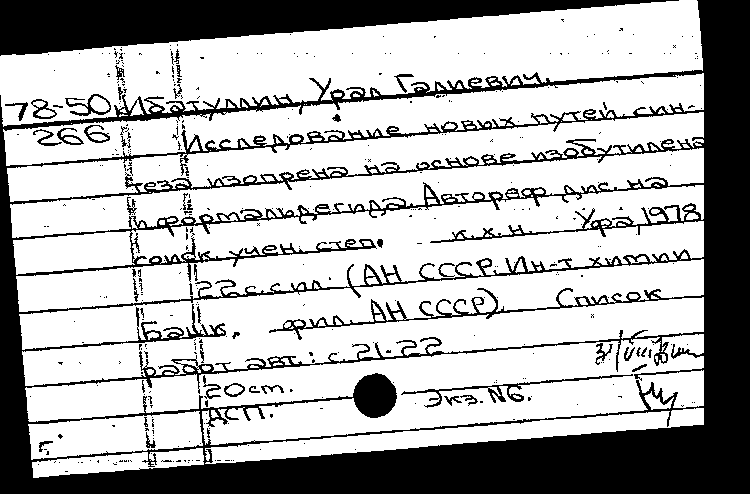 78-50 Ибатуллин, Урал Галиевич.
266 Исследование новых путей син-
теза изопрена на основе изобутилена
и формальдегида. Автореф. дис. на
соиск. учен. степ. к.х.н. Уфа, 1978
22 с. с ил. (АН СССР. Ин-т химии
Башк. фил. АН СССР). Список
работ авт.: с. 21-22
20 см.
АСП. Экз. №6.